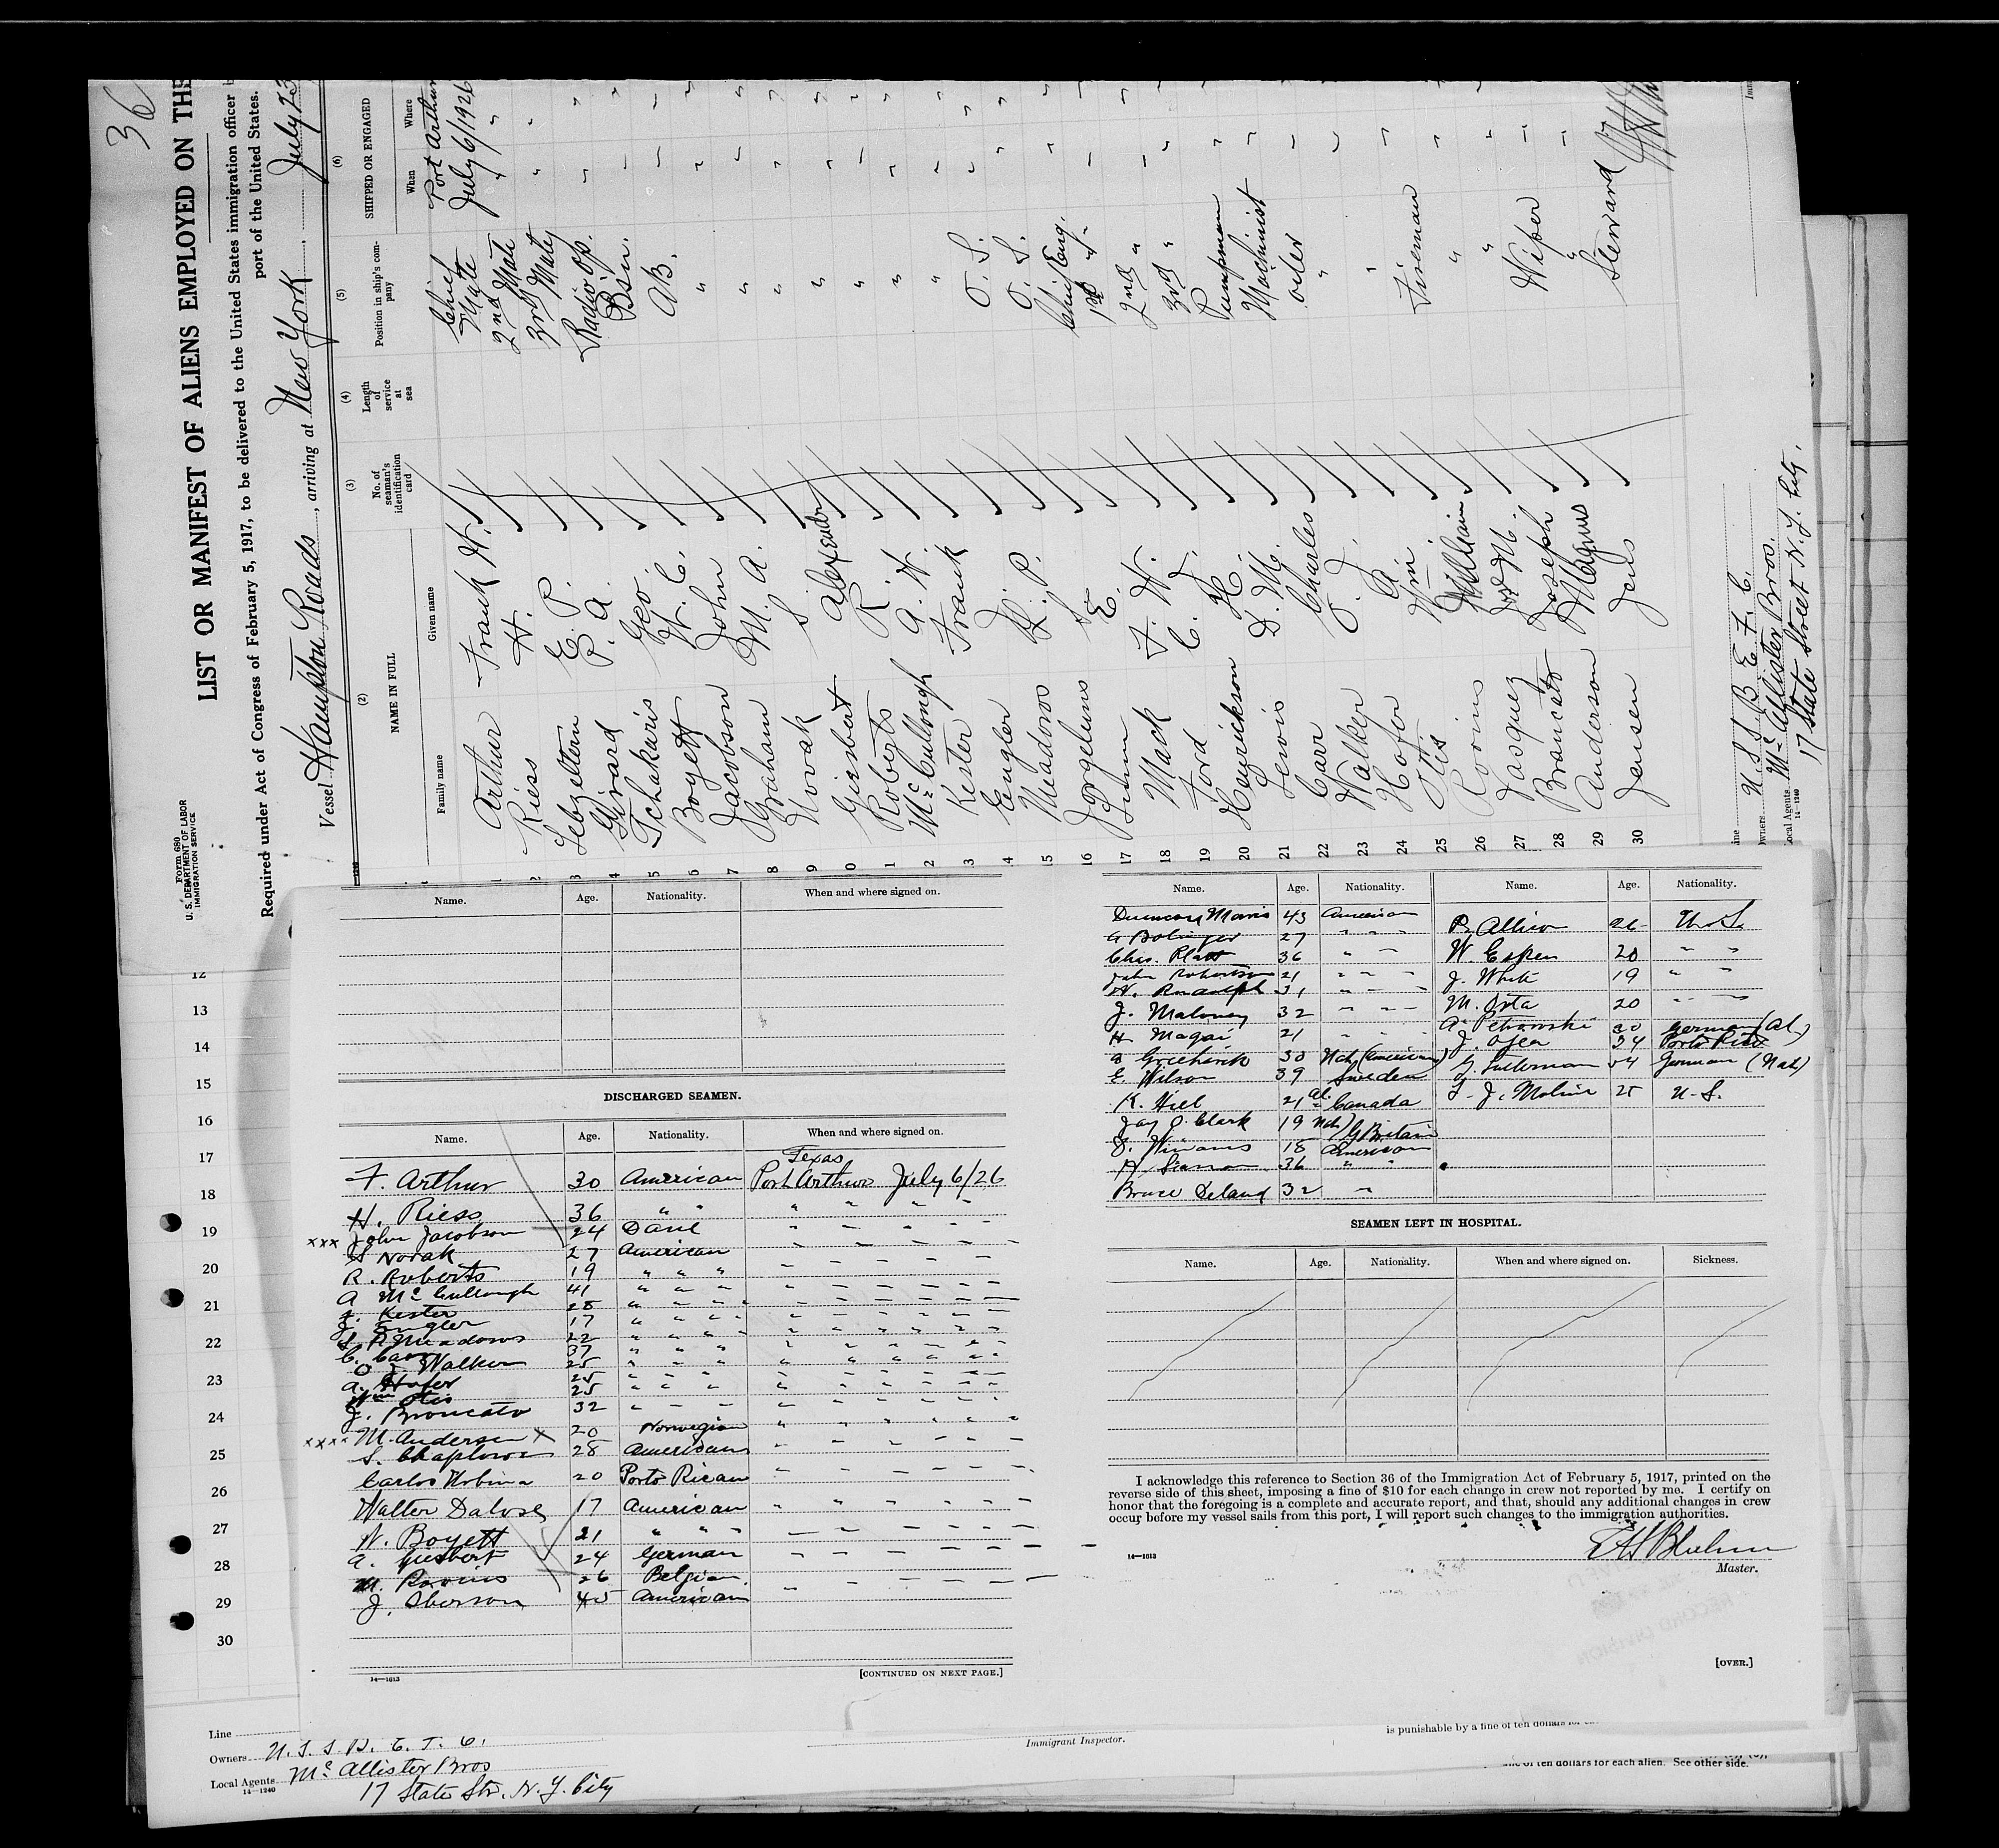 36
LIST OR MANIFEST OF ALIENS EMPLOYED ON THE
Form 680
U. S. DEPARTMENT OF LABOR
IMMIGRATION SERVICE
Required under Act of Congress of February 5, 1917, to be delivered to the United States immigration officer
port of the United States.
Vessel Hampton Roads, arriving at New York, July 23
(2) (3) (4) (5) (6)
NAME IN FULL
Family name Given name
No. of seaman's identification card
Length of service at sea
Position in ship's company
SHIPPED OR ENGAGED
When Where
Port Arthur
1 Arthur Frank W. Chief Mate July 6/1926
2 Riess H. 2nd Mate " "
3 Lebzeltern E. P. 3rd Mate " "
4 Girard P. A. Radio Op. " "
5 Tchakaris Geo. Bsn. " "
6 Boyett W. C. AB. " "
7 Jacobson John " " "
8 Graham M. A. " " "
9 Novak S. " " "
0 Giesbert Alexander " " "
1 Roberts R. " " "
2 McCullough A. W. " " "
3 Kester Frank O. S. " "
4 Engler J. O. S. " "
15 Meadows L. P. Chief Eng. " "
16 Jorgelums S. 1st " " "
17 E. 2nd " " "
18 Mack F. W. 3rd " " "
19 Ford C. J. Pumpman " "
20 Henrickson H. Machinist " "
21 Lewis D. M. Oiler " "
22 Carr Charles " " "
23 Walker O. J. " " "
24 Hofer A. Fireman " "
25 Otis Wm " " "
26 Rovins William " " "
27 Vasquez M. Wiper " "
28 Brancato Joseph " " "
29 Anderson Magnus Steward
30 Jensen Jens
Line
Owners U S S B E F C
Local Agents McAllister Bros.
14—1240
17 State Street N. Y. City.
Name. Age. Nationality. When and where signed on.
DISCHARGED SEAMEN.
Name. Age. Nationality. When and where signed on.
Texas
F. Arthur 30 American Port Arthur July 6/26
H. Riess 36 " " " " " "
xxx John Jacobson 24 Dane " " " "
S Novak 27 American " " " "
R. Roberts 19 " " " " " " "
A McCullough 41 " " " " " " "
F. Kester 28 " " " " " " "
J. Engler 17 " " " " " " "
L. P. Meadows 22 " " " " " " "
C. Carr 37 " " " " " " "
O J Walker 25 " " " " " " "
A. Hofer 25 " " " " " " "
Wm Otis 25 " " " " " " "
J. Broncato 32 " " " " " " "
xxxx M. Andersen X 20 Norwegian " " " "
S. Chaplowe 28 American " " " "
Carlos Molina 20 Porto Rican " " " "
Walter Dalose 17 American " " " "
W. Boyett 21 " " " " " " "
A. Giesbert 24 German " " " "
M. Rovins 26 Belgian " " " "
J. Iberson 45 American
14—1613 [CONTINUED ON NEXT PAGE.]
Name. Age. Nationality. Name. Age. Nationality.
Duncan Morris 43 American
G Bolinger 27 " " "
Chis. Platt 36 " "
John Robertson 21 " " "
H. Rudolph 31 " " "
J. Maloney 32 " " "
H Magai 21 " " "
30 Nat. (American)
E. Wilson 39 Sweden
K. Hill 21 al. Canada
Jay O. Clark 19 Nat) G Britain
J. Winans 18 American
36 " "
Bruce Deland 32 "
R. Allison 26 U. S.
W. Espen 20 " "
J. White 19 " "
M. Orta 20 " "
A. Petrowski 30 German (Al.)
J. Ojea 34 Porto Rico
54 German (Nat)
F. J. Molini 25 U. S.
SEAMEN LEFT IN HOSPITAL.
Name. Age. Nationality. When and where signed on. Sickness.
I acknowledge this reference to Section 36 of the Immigration Act of February 5, 1917, printed on the
reverse side of this sheet, imposing a fine of $10 for each change in crew not reported by me. I certify on
honor that the foregoing is a complete and accurate report, and that, should any additional changes in crew
occur before my vessel sails from this port, I will report such changes to the immigration authorities.
14—1613
Master.
[OVER.]
12
13
14
15
16
17
18
19
20
21
22
23
24
25
26
27
28
29
30
Line
Owners U. S. S. B. E. F. C.
Local Agents McAllister Bros
14—1240
17 State Str. N. Y. City
Immigrant Inspector.
is punishable by a fine of ten dollars for
of ten dollars for each alien. See other side.